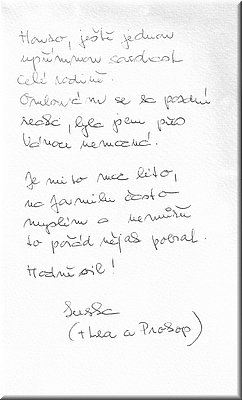 Hanso, ještě jednou
upřímnou soustrast
celé rodině.
Omlouvám se za pozdní
reakci, byla jsem přes
Vánoce nemocná.
Je mi to moc líto,
na Jarmilu často
myslím a nemůžu
to pořád nějak pobrat.
Hodně sil!
Zuzka
(+ Lea a Prosop)